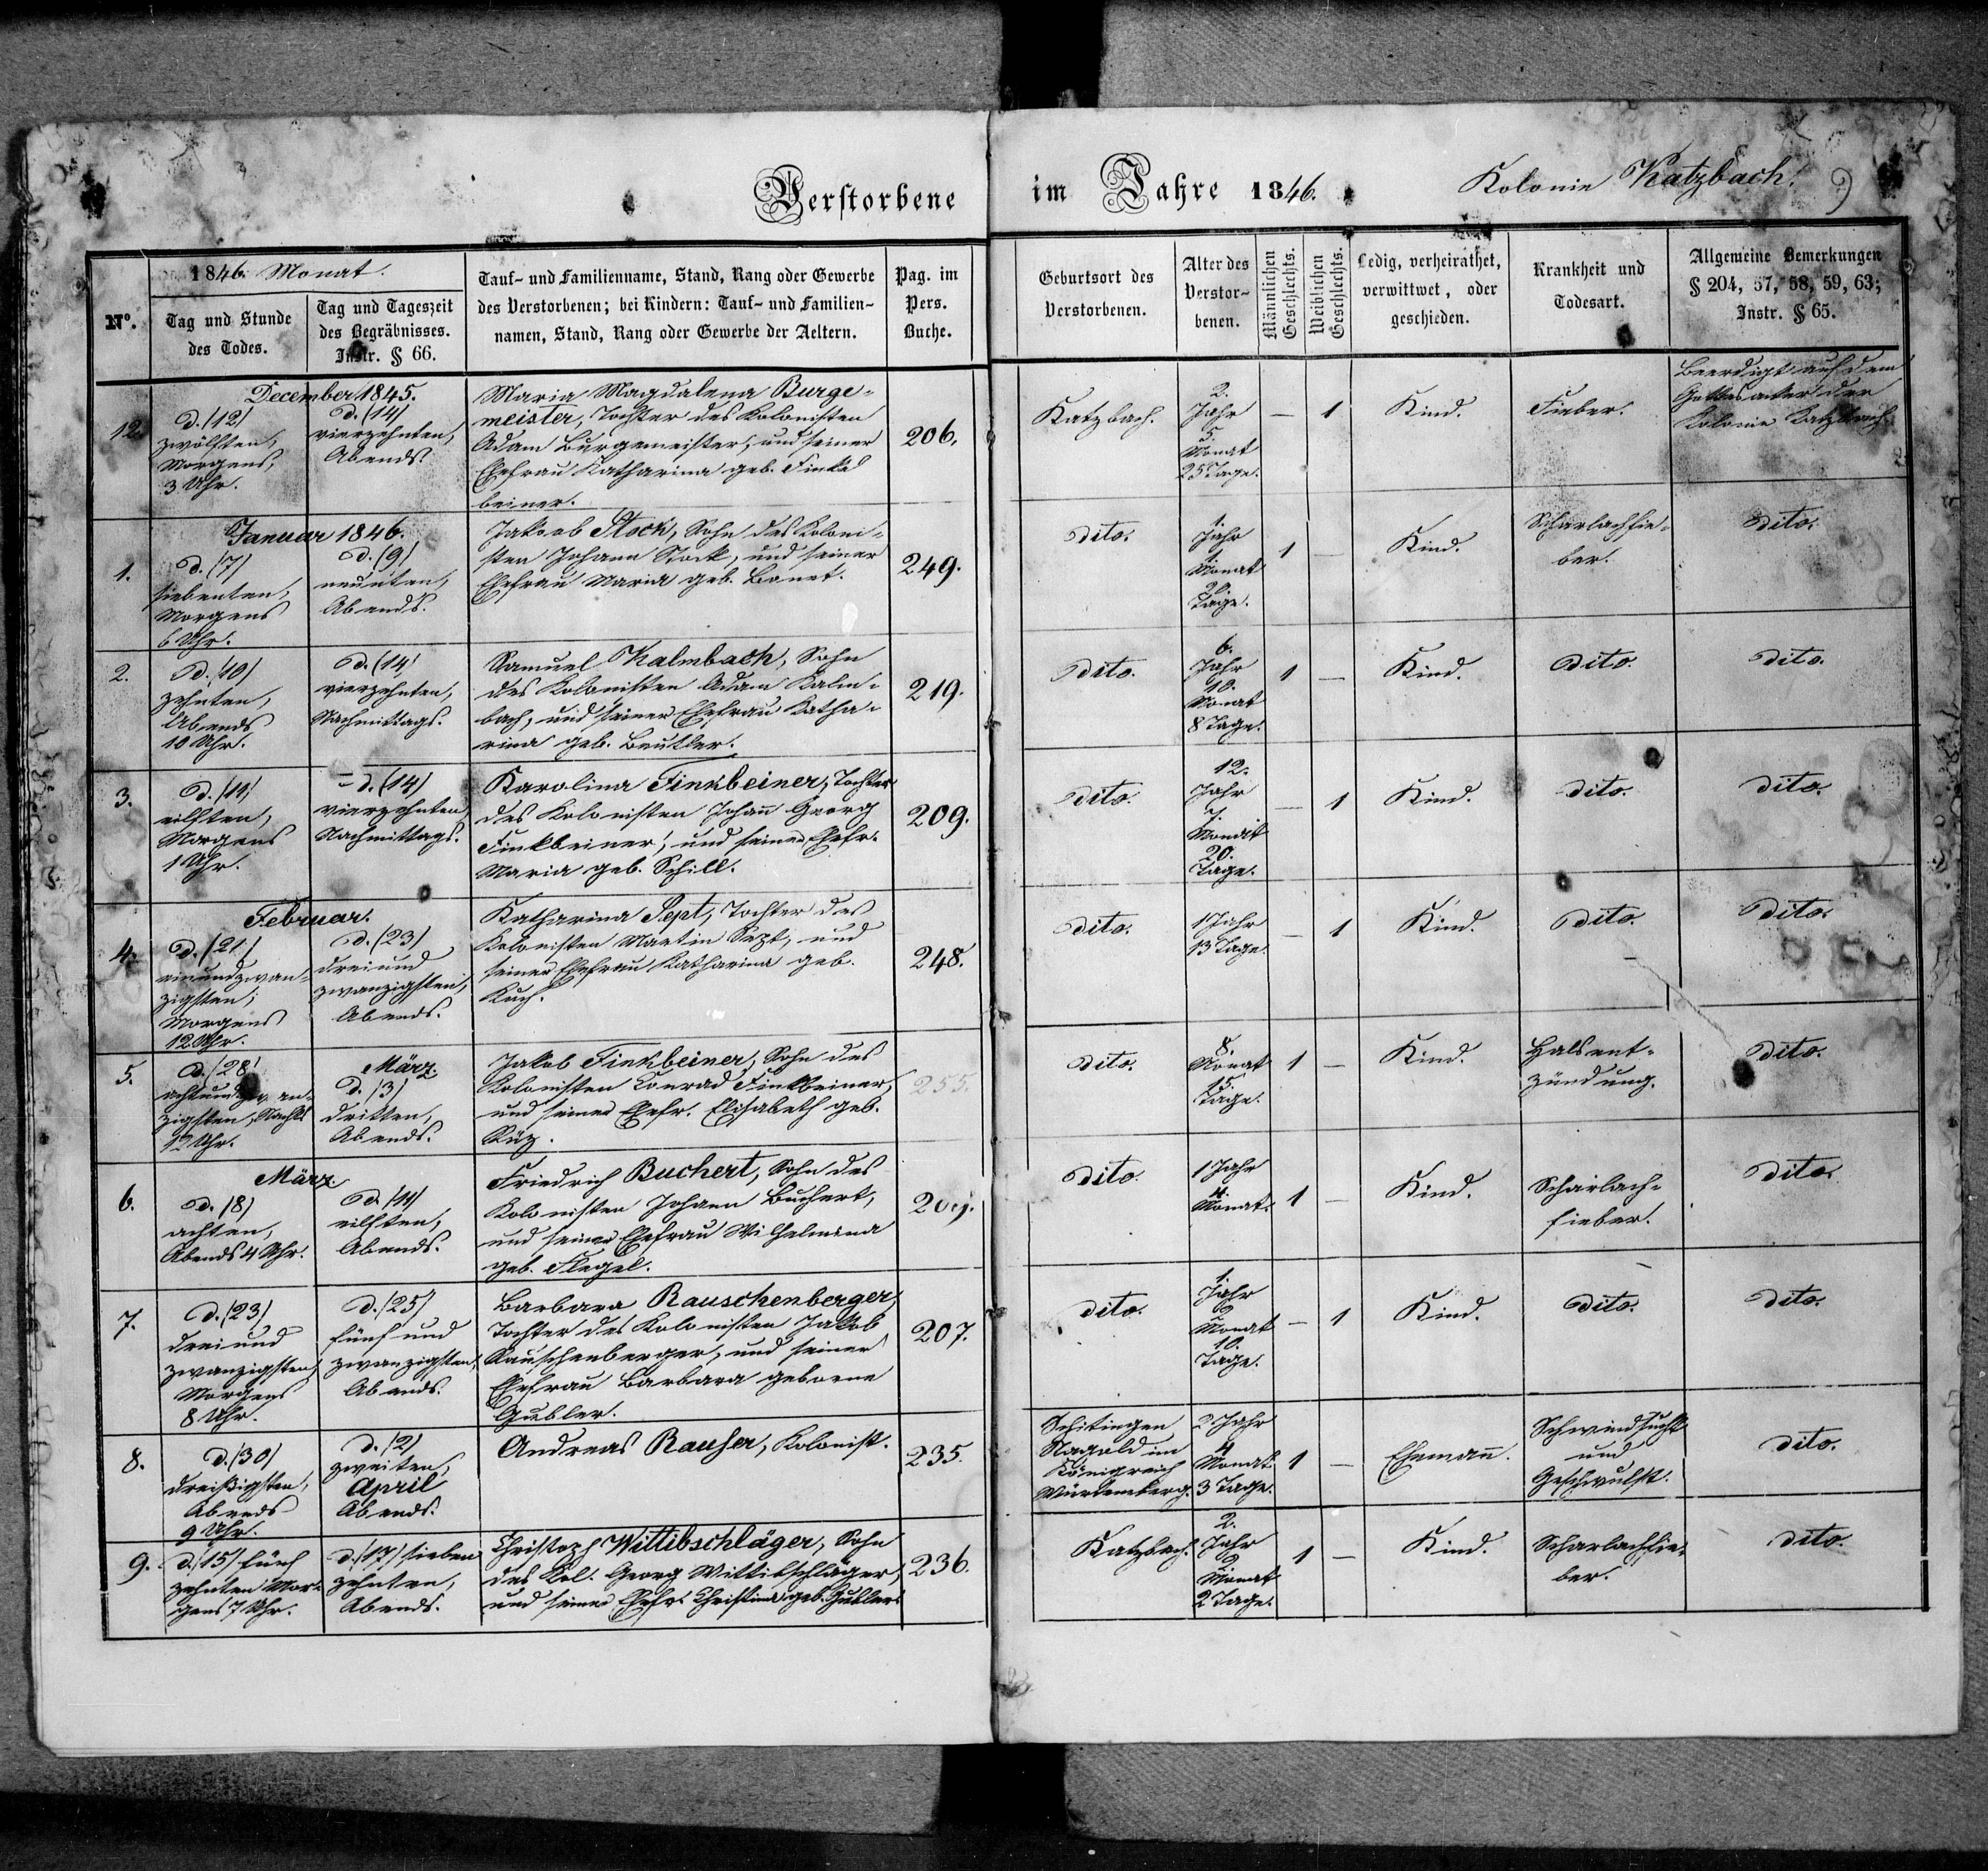 Verstorbene im Jahre 1846. Kolonie Katzbach. 9
1846. Monat.
Nº.
Tag und Stunde
des Todes.
Tag und Tageszeit
des Begräbnisses.
Instr. § 66.
Tauf- und Familienname, Stand, Rang oder Gewerbe
des Verstorbenen; bei Kindern: Tauf- und Familien-
namen, Stand, Rang oder Gewerbe der Aeltern.
Pag. im
Pers.
Buche.
Geburtsort des
Verstorbenen.
Alter des
Verstor-
benen.
Männlichen
Geschlechts.
Weiblichen
Geschlechts.
Ledig, verheirathet,
verwittwet, oder
geschieden.
Krankheit und
Todesart.
Allgemeine Bemerkungen
§ 204, 57, 58, 59, 63;
Instr. § 65.
December 1845.
12.
d. (12)
zwölften,
Morgens,
3 Uhr.
d. (14)
vierzehnten,
Abends.
Maria Magdalena Burge-
meister, Tochter des Kolonisten
Adam Burgemeister, und seiner
Ehefrau Katharina geb. Finkel
beiner.
206.
Katzbach.
2.
Jahr
5.
Monat
25 Tage.
—
1
Kind.
Fieber.
Beerdigt auf dem
Gottesacker der
Kolonie Katzbach.
Januar 1846.
1.
d. (7)
siebenten,
Morgens
6 Uhr.
d. (9)
neunten,
Abends.
Jakob Stock, Sohn des Koloni-
sten Johann Stock, und seiner
Ehefrau Maria geb. Bonet.
249.
dito.
1.
Jahr
1.
Monat
Tage.
1
—
Kind.
Scharlachfie-
ber.
dito.
2.
d. (10)
zehnten,
Abends
10 Uhr.
d. (14)
vierzehnten,
Nachmittags.
Samuel Kalmbach, Sohn
des Kolonisten Adam Kalm-
bach, und seiner Ehefrau Katha-
rina geb. Beutler.
219.
dito.
6.
Jahr
10.
Monat
8 Tage.
1
—
Kind.
dito.
dito.
3.
d. (11)
eilften,
Morgens
1 Uhr.
d. (14)
vierzehnten,
Nachmittags.
Karolina Finkbeiner, Tochter
des Kolonisten Johann Georg
Finkbeiner, und seiner Ehefr.
Maria geb. Schill.
209.
dito.
12.
Jahr
Monat
20.
Tage.
—
1
Kind.
dito.
dito.
Februar.
4.
d. (21)
einundzwan-
zigsten,
Morgens
12 Uhr.
d. (23)
dreiund
zwanzigsten,
Abends.
Katharina Sept, Tochter des
Kolonisten Martin Sept, und
seiner Ehefrau Katharina geb.
Kuch.
248.
dito.
1 Jahr
13 Tage.
—
1
Kind.
dito.
dito.
5.
d. (28)
achtundzwan-
zigsten, Nachts
12 Uhr.
März.
d. (3)
dritten,
Abends.
Jakob Finkbeiner, Sohn des
Kolonisten Konrad Finkbeiner,
und seiner Ehefr. Elisabeth geb.
Rüz.
255.
dito.
8.
Monat
15.
Tage.
1
—
Kind.
Halsent-
zündung.
dito.
März
6.
d. (8)
achten,
Abends 4 Uhr.
d. (11)
eilften,
Abends.
Friedrich Buchert, Sohn des
Kolonisten Johann Buchert,
und seiner Ehefrau Wilhelmina
geb. Flegel.
dito.
1 Jahr
4.
Monat.
1
—
Kind.
Scharlach-
fieber.
dito.
7.
d. (23)
dreiund
zwanzigsten,
Morgens
8 Uhr.
d. (25)
fünfund
zwanzigsten,
Abends.
Barbara Rauschenberger,
Tochter des Kolonisten Jakob
Rauschenberger, und seiner
Ehefrau Barbara geborne
Gubler.
207.
dito.
1.
Jahr
2
Monat
10.
Tage.
—
1
Kind.
dito.
dito.
8.
d. (30)
dreißigsten,
Abends
9 Uhr.
d. (2)
zweiten,
April
Abends.
Andreas Rauser, Kolonist.
235.
Nagold im
Königreich
Würtemberg.
Jahr
4
Monat
3 Tage.
1
—
Ehemann.
Schwindsucht
und
Geschwulst.
dito.
9.
d. (15) fünf
zehnten Mor-
gens 7 Uhr.
d. (17) sieben
zehnten,
Abends.
Christoph Wittibschläger, Sohn
des Kol. Georg Wittibschläger,
und seiner Ehefr. Christina geb. Gubler.
236.
Katzbach.
2.
Jahr
2
Monat
2 Tage.
1
—
Kind.
Scharlachfie-
ber.
dito.